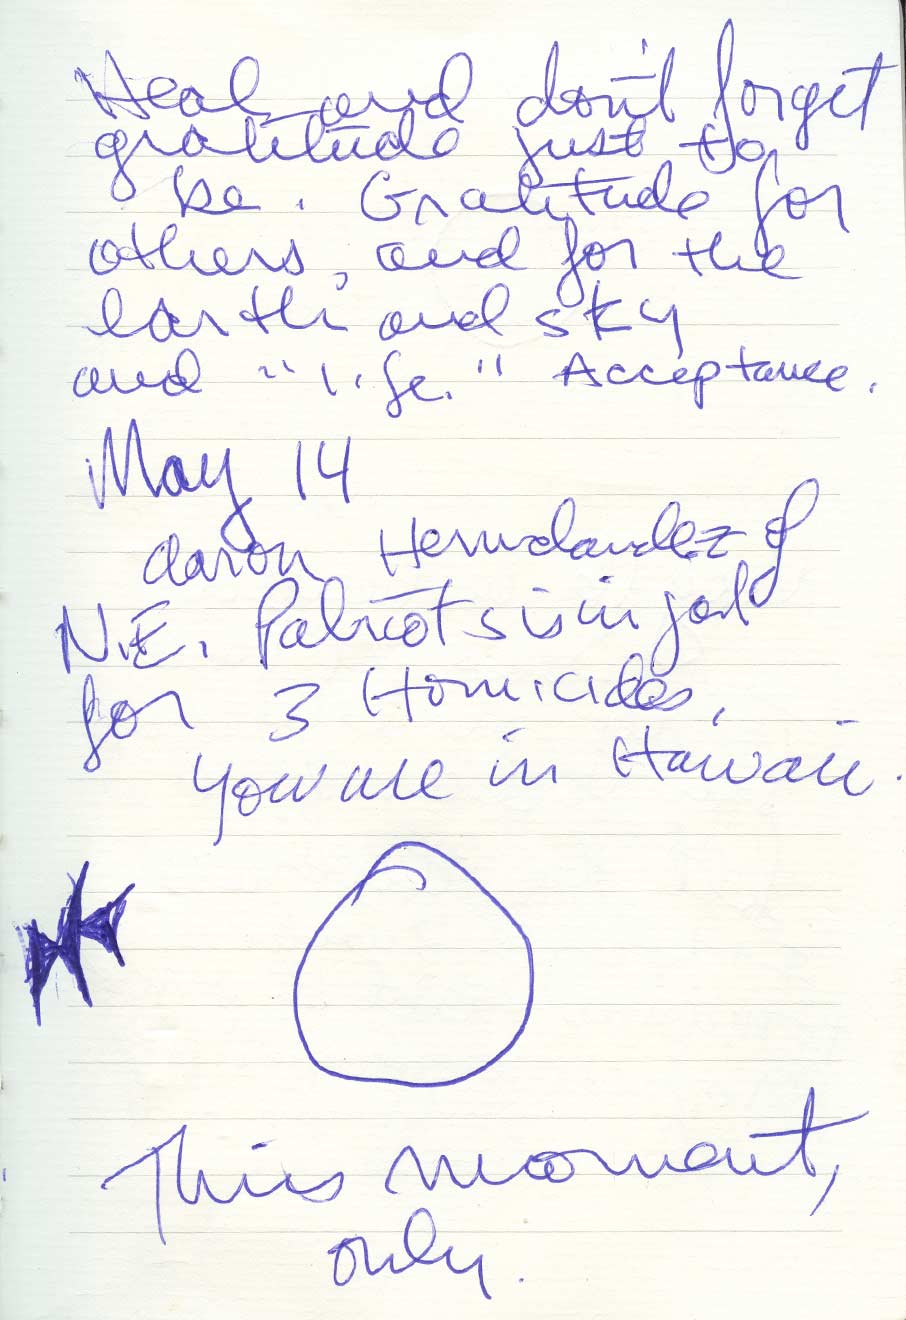 Heal and don't forget
gratitude just to
be. Gratitude for
others, and for the
earth and sky
and "life." Acceptance.
May 14
Aaron Herndandez of
N.E. Patriots is in jail
for 3 Homicides,
You are in Hawaii.
This moment,
only.